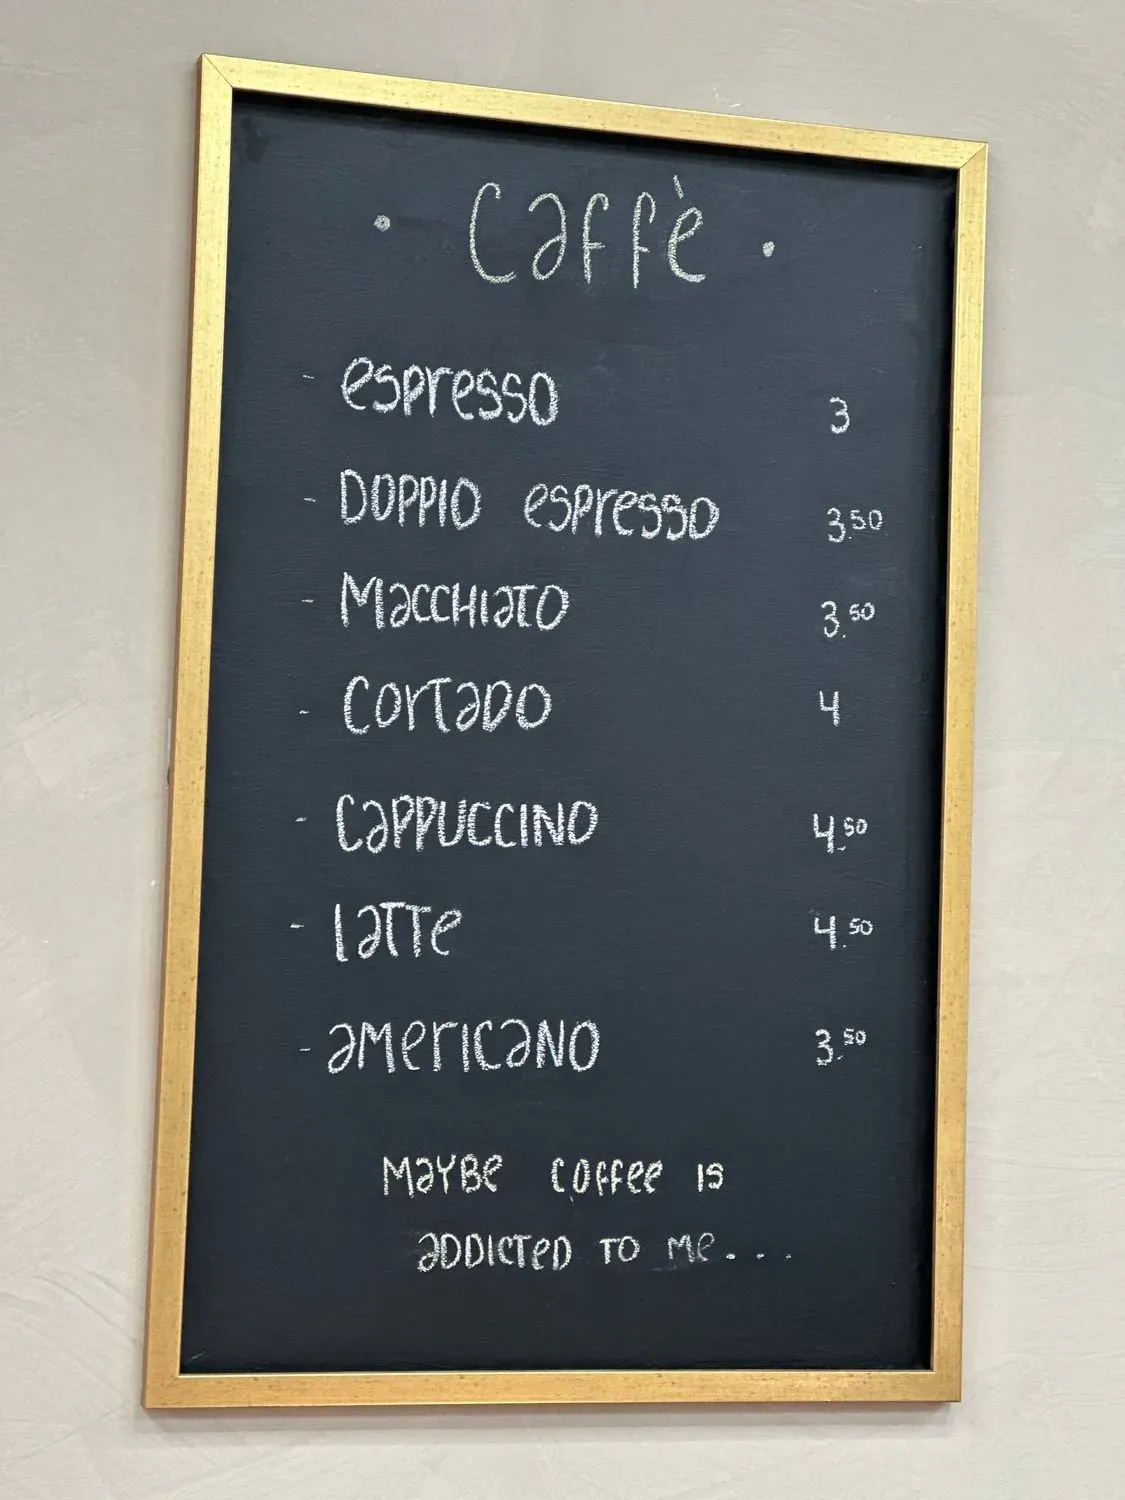 • Caffè •
- espresso 3
- DOPPIO espresso 3.50
- Macchiato 3.50
- Cortado 4
- Cappuccino 4.50
- latte 4.50
- americano 3.50
Maybe coffee is
addicted to me...